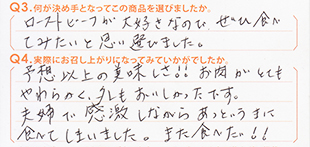 Q3.何が決め手となってこの商品を選びましたか。
ローストビーフが大好きなので、ぜひ食べ
てみたいと思い選びました。
Q4.実際にお召し上がりになってみていかがでしたか。
予想以上の美味しさ!! お肉がとても
やわらかく、タレもおいしかったです。
夫婦で感激しながらあっというまに
食べてしまいました。また食べたい!!